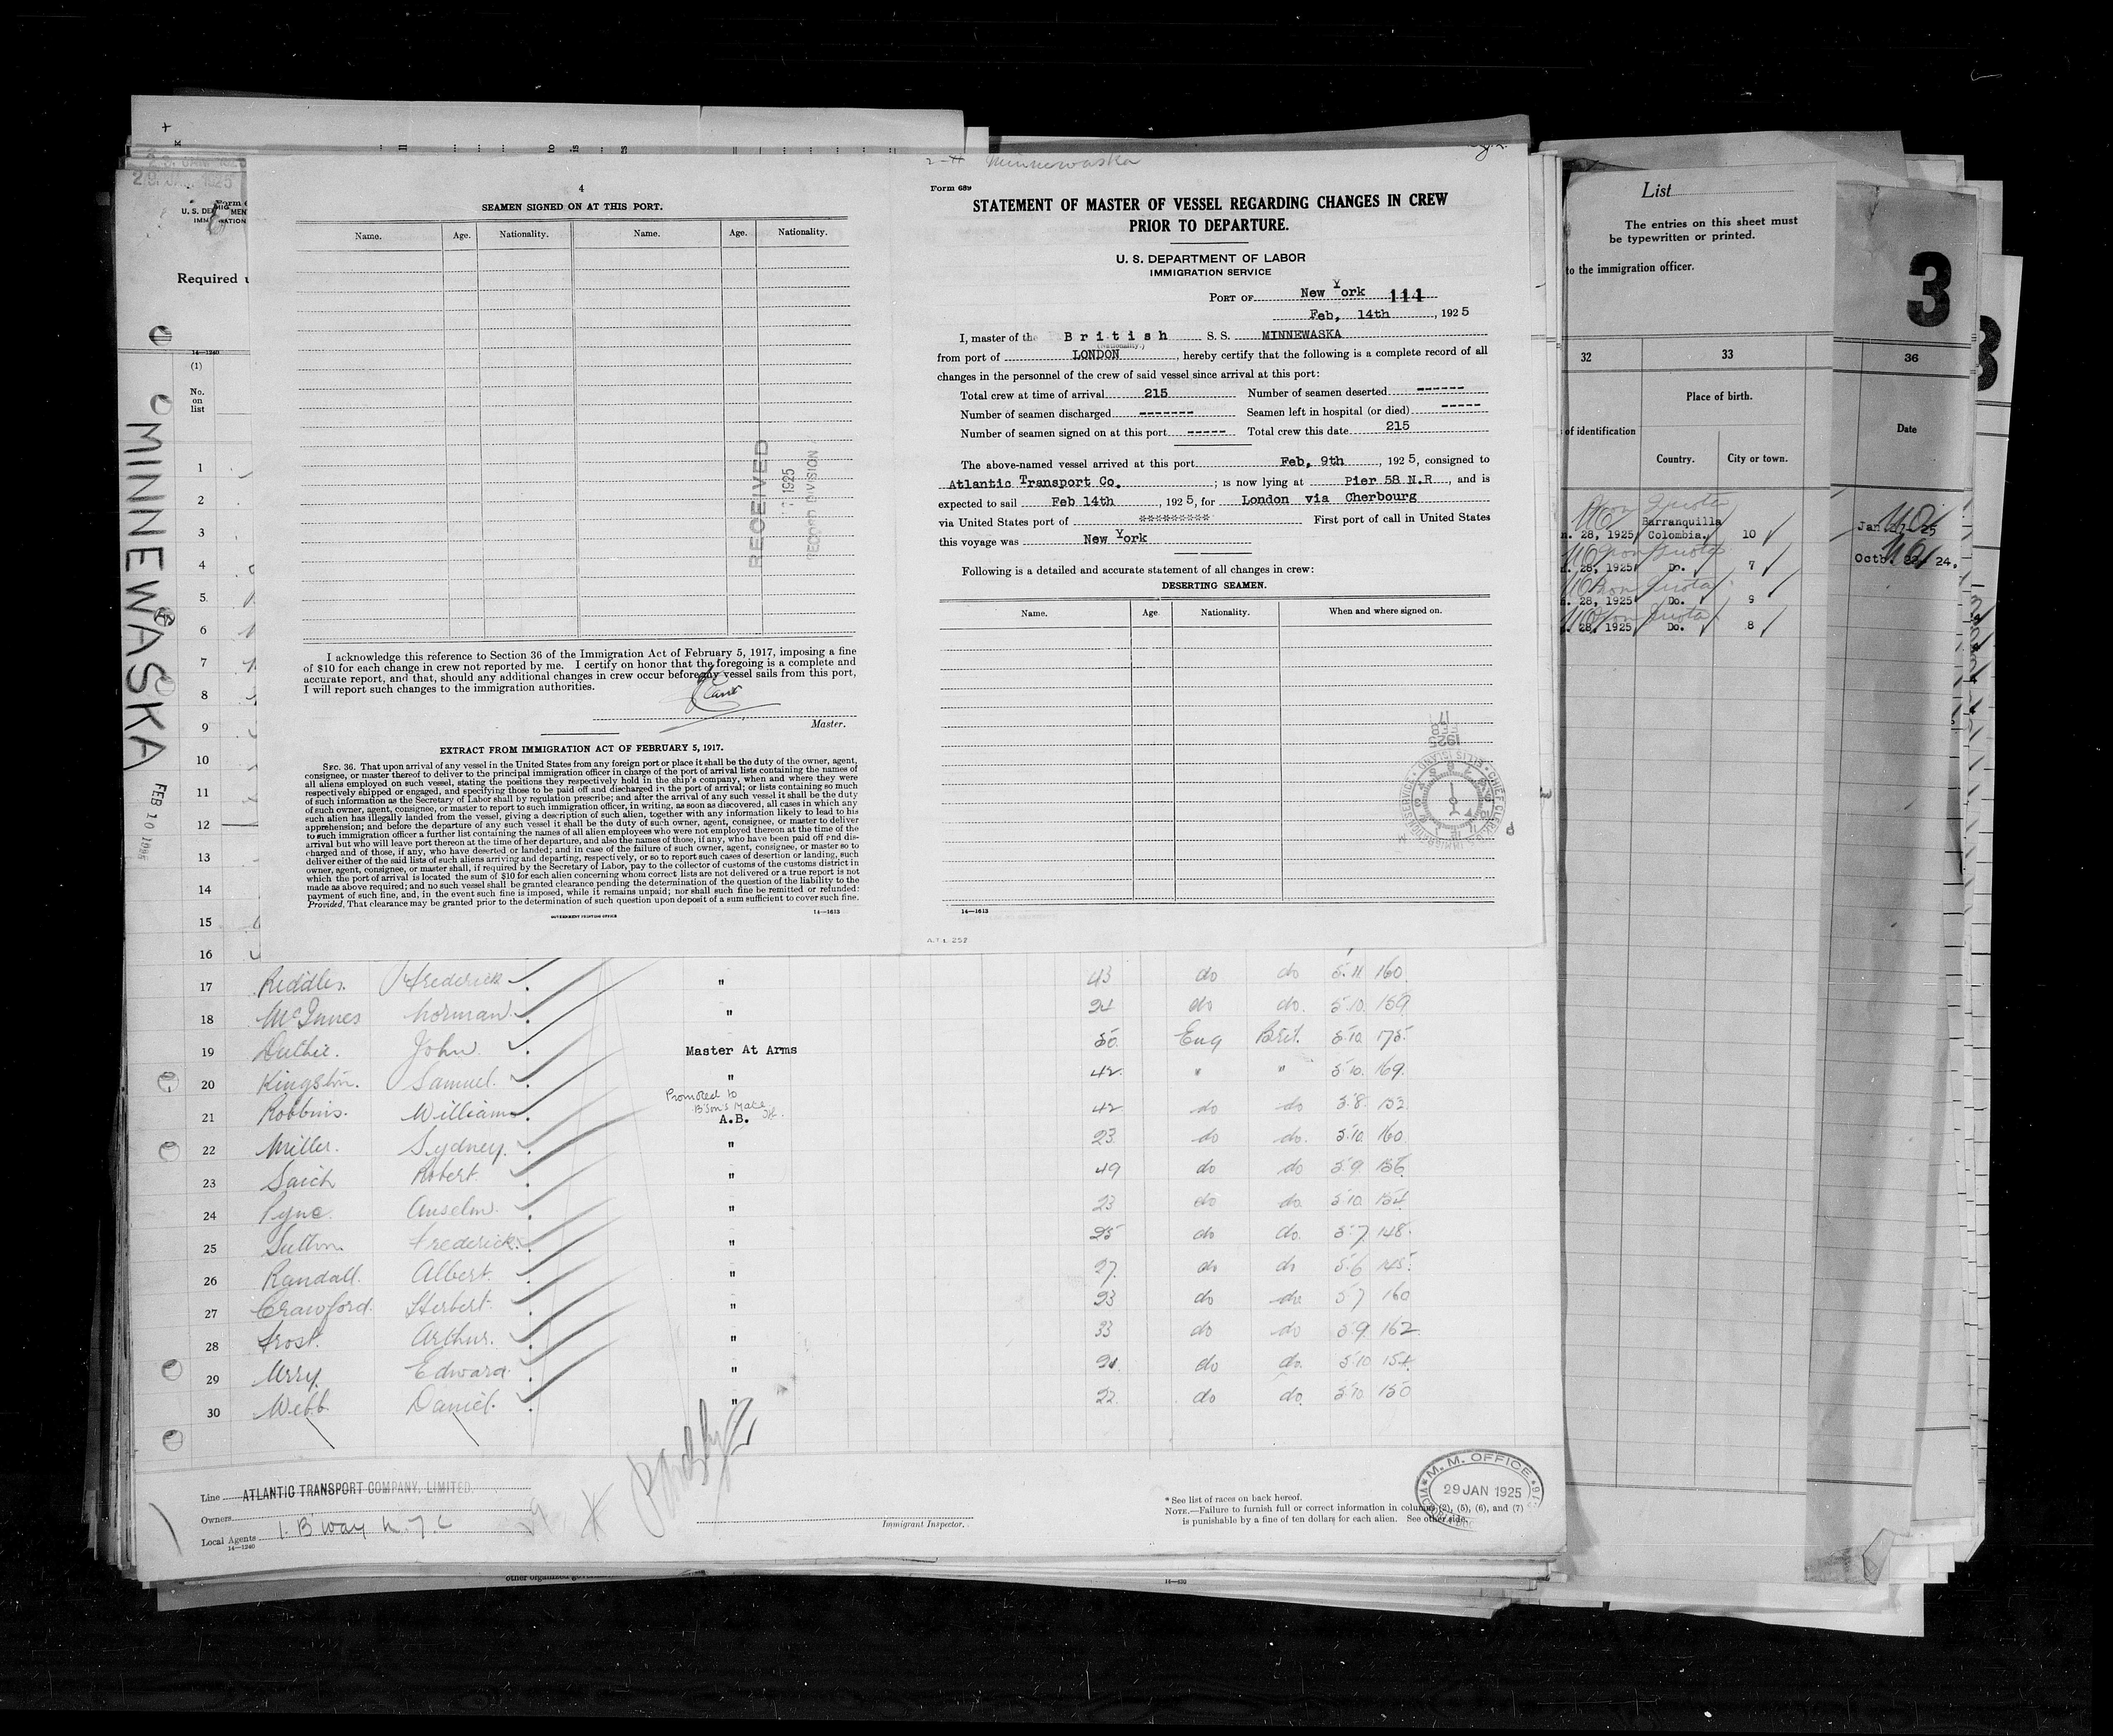 2-H Minnewaska
4
SEAMEN SIGNED ON AT THIS PORT.
Name. Age. Nationality. Name. Age. Nationality.
RECEIVED
1925
RECORD DIVISION
I acknowledge this reference to Section 36 of the Immigration Act of February 5, 1917, imposing a fine
of $10 for each change in crew not reported by me. I certify on honor that the foregoing is a complete and
accurate report, and that, should any additional changes in crew occur before my vessel sails from this port,
I will report such changes to the immigration authorities.
Master.
EXTRACT FROM IMMIGRATION ACT OF FEBRUARY 5, 1917.
SEC. 36. That upon arrival of any vessel in the United States from any foreign port or place it shall be the duty of the owner, agent,
consignee, or master thereof to deliver to the principal immigration officer in charge of the port of arrival lists containing the names of
all aliens employed on such vessel, stating the positions they respectively hold in the ship's company, when and where they were
respectively shipped or engaged, and specifying those to be paid off and discharged in the port of arrival; or lists containing so much
of such information as the Secretary of Labor shall by regulation prescribe; and after the arrival of any such vessel it shall be the duty
of such owner, agent, consignee, or master to report to such immigration officer, in writing, as soon as discovered, all cases in which any
such alien has illegally landed from the vessel, giving a description of such alien, together with any information likely to lead to his
apprehension; and before the departure of any such vessel it shall be the duty of such owner, agent, consignee, or master to deliver
to such immigration officer a further list containing the names of all alien employees who were not employed thereon at the time of the
arrival but who will leave port thereon at the time of her departure, and also the names of those, if any, who have been paid off and dis-
charged and of those, if any, who have deserted or landed; and in case of the failure of such owner, agent, consignee, or master so to
deliver either of the said lists of such aliens arriving and departing, respectively, or so to report such cases of desertion or landing, such
owner, agent, consignee, or master shall, if required by the Secretary of Labor, pay to the collector of customs of the customs district in
which the port of arrival is located the sum of $10 for each alien concerning whom correct lists are not delivered or a true report is not
made as above required; and no such vessel shall be granted clearance pending the determination of the question of the liability to the
payment of such fine, and, in the event such fine is imposed, while it remains unpaid; nor shall such fine be remitted or refunded:
Provided, That clearance may be granted prior to the determination of such question upon deposit of a sum sufficient to cover such fine.
GOVERNMENT PRINTING OFFICE 14—1613
Form 689
STATEMENT OF MASTER OF VESSEL REGARDING CHANGES IN CREW
PRIOR TO DEPARTURE.
U. S. DEPARTMENT OF LABOR
IMMIGRATION SERVICE
PORT OF New York 111
Feb, 14th, 1925
I, master of the British S. S. MINNEWASKA
(Nationality.)
from port of LONDON, hereby certify that the following is a complete record of all
changes in the personnel of the crew of said vessel since arrival at this port:
Total crew at time of arrival 215 Number of seamen deserted ------
Number of seamen discharged ------- Seamen left in hospital (or died) -----
Number of seamen signed on at this port ----- Total crew this date 215
The above-named vessel arrived at this port Feb, 9th, 1925, consigned to
Atlantic Transport Co.; is now lying at Pier 58 N.R, and is
expected to sail Feb 14th, 1925, for London via Cherbourg
via United States port of ********* First port of call in United States
this voyage was New York
Following is a detailed and accurate statement of all changes in crew:
DESERTING SEAMEN.
Name. Age. Nationality. When and where signed on.
14—1613
A.T.L. 252
29 JAN 1925
U. S. DE
IMM
Required
14—1240
(1)
No.
on
list
MINNEWASKA
FEB 10 1925
1
2
3
4
5
6
7
8
9
10
11
12
13
14
15
16
17 Riddler. Frederick " 43 do do 5.11 160
18 McInnes Norman " 24 do do. 5.10. 159
19 Duthie. John Master At Arms 50. Eng Brit. 5.10. 175.
20 Kingston. Samuel " 42. " " 5.10. 169.
Promoted to
B'son's Mate
21 Robbins. William A.B. 42 do do 5.8. 152
22 Miller. Sydney. " 23. do do. 5.10. 160
23 Saich Robert " 49 do do 5.9. 156.
24 Pyne. Anselm. " 23 do do 5.10. 154
25 Sutton. Frederick. " 25 do do. 5.7. 148.
26 Randall. Albert. " 27. do do 5.6 145.
27 Crawford. Herbert. " 23 do do 5.7 160
28 Frost. Arthur. " 33 do do 5.9. 162.
29 Urry. Edward. " do do. 5.10 154.
30 Webb Daniel. " 22. do do. 5.10. 150
Line ATLANTIC TRANSPORT COMPANY, LIMITED.
Owners
Local Agents 1. B'way N.Y.C
14—1240
Immigrant Inspector.
* See list of races on back hereof.
NOTE.—Failure to furnish full or correct information in columns (2), (5), (6), and (7)
is punishable by a fine of ten dollars for each alien. See other side.
M. M. OFFICE
29 JAN 1925
other organized
14—430
List
The entries on this sheet must
be typewritten or printed.
to the immigration officer.
32 33
Place of birth.
of identification
Country. City or town.
Non Quota
Barranquilla
28, 1925 Colombia. 10
Non Quota
28, 1925 Do. 7
Non Quota
28, 1925 Do. 9
Non Quota
28, 1925 Do. 8
3
36
Date
Jan 27- 25
Octb. 22/ 24.